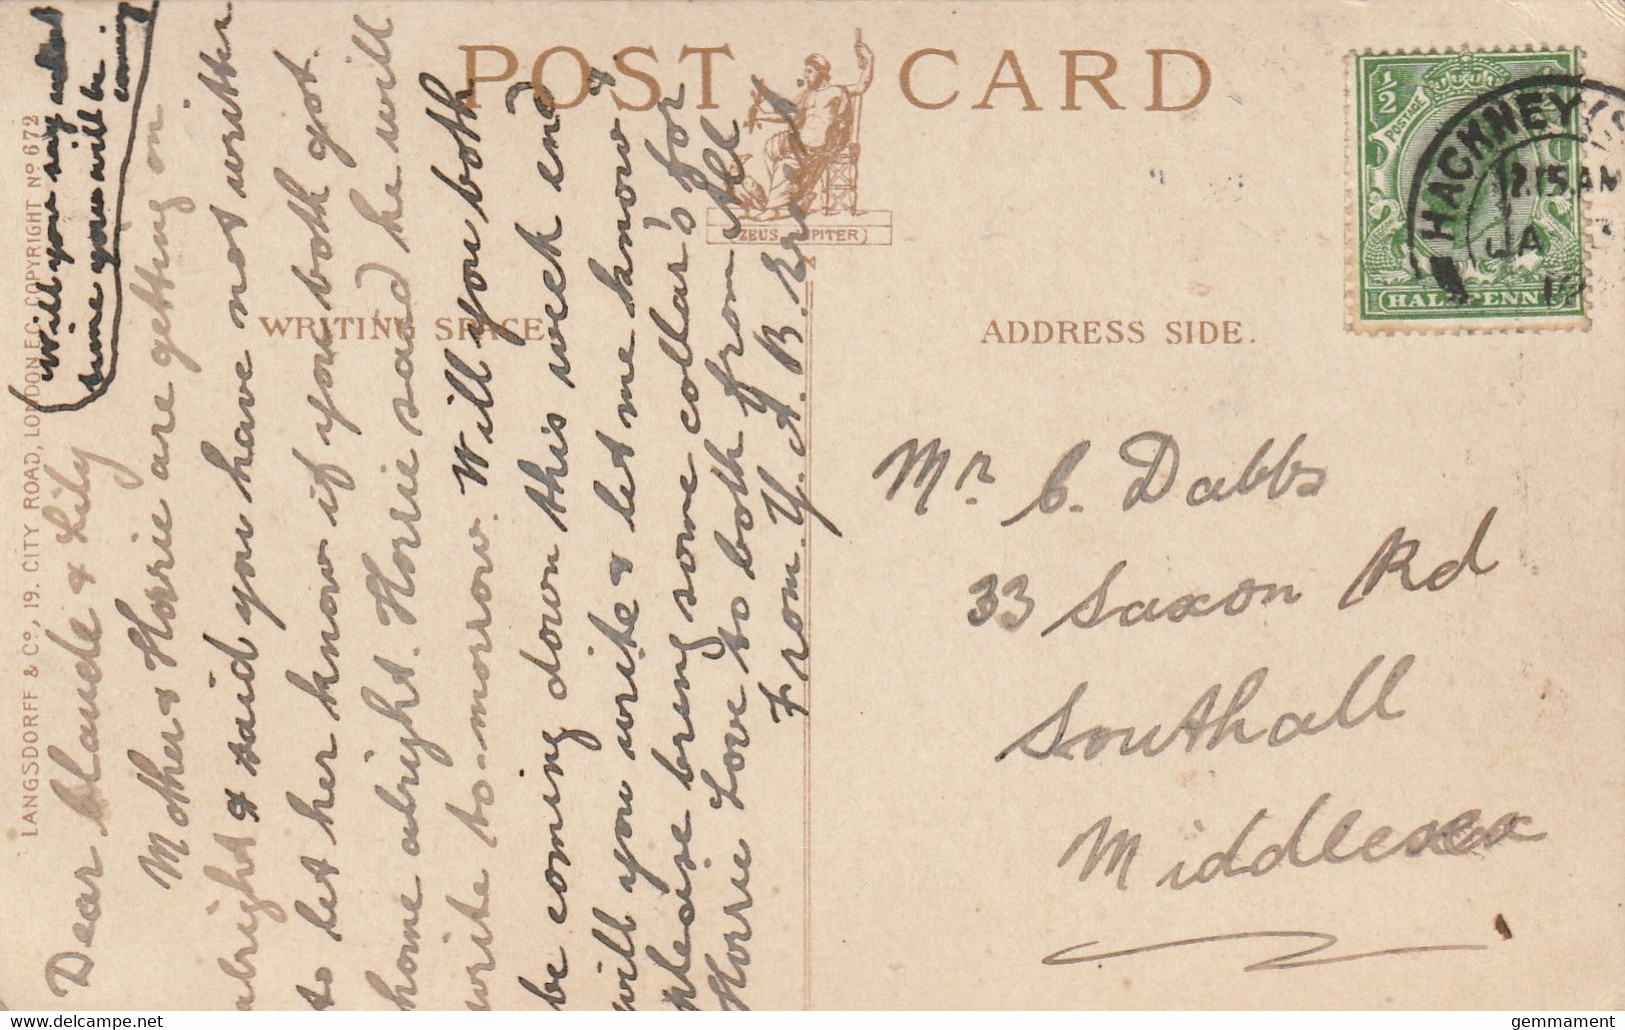 POST CARD
ZEUS JUPITER)
WRITING SPACE.
ADDRESS SIDE.
LANGSDORFF & Co, 19. CITY ROAD, LONDON E.C. COPYRIGHT No 672
Will you say
time you will be
coming
Dear Claude & Lily
Mother & Horrie are getting on
abright & said you have not written
to let her know if you both got
home abright. Horrie said he will
write to-morrow. Will you both
be coming down this week end &
will you write & let me know &
please bring some collar's for
Horrie Love to both from All
From Y. A. B. Ernest
½ ½
POSTAGE
HALFPENNY
HACKNEY (S
12.15 AM
JA 3
12
Mr C. Dabbs
33 Saxon Rd
Southall
Middlesex
gemmament